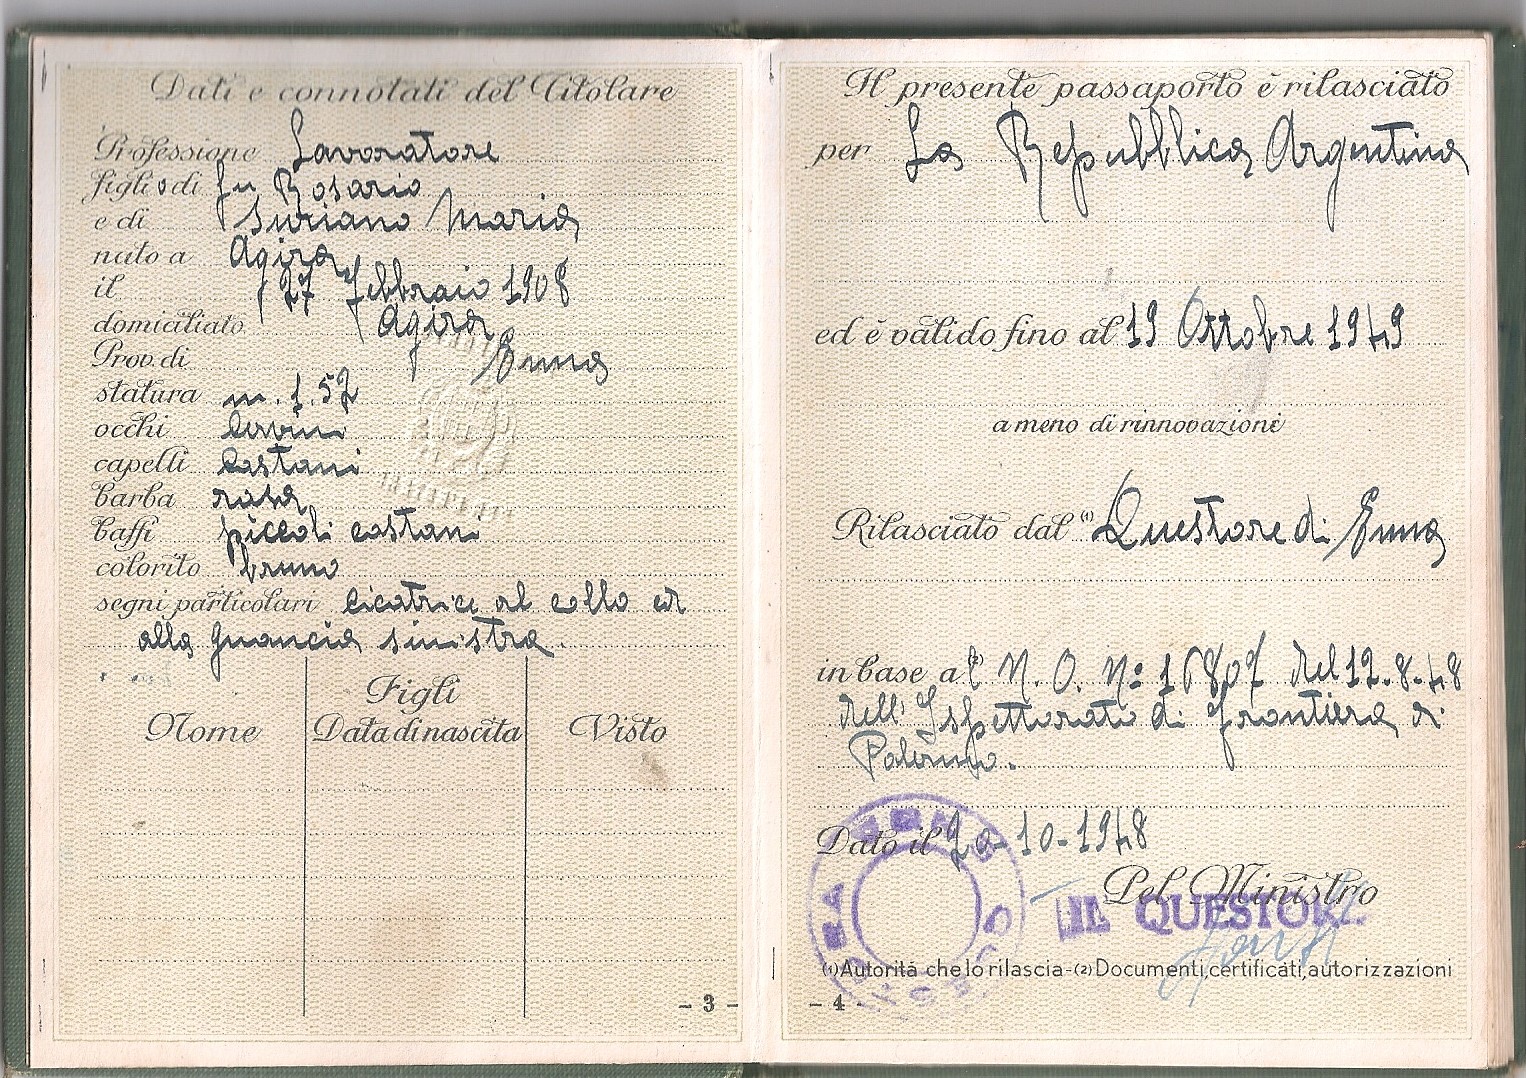 Dati e connotati del Titolare
Professione Lavoratore
figlio di fu Rosario
e di Suriano Maria
nato a Agira
il 27 Febbraio 1908
domiciliato Agira
Prov. di Enna
statura m. 1.57
occhi Cervini
capelli Castani
barba rasa
baffi piccoli castani
colorito bruno
segni particolari Cicatrice al collo ed
alla guancia sinistra.
Figli
Nome Data di nascita Visto
- 3 -
Il presente passaporto è rilasciato
per La Repubblica Argentina
ed è valido fino al 19 Ottobre 1949
a meno di rinnovazione
Rilasciato dal (1) Questore di Enna
in base al (2) N. O. Nº 16807 del 12-8-48
dell'Ispettorato di frontiera di
Palermo.
Dato il 20-10-1948
Pel Ministro
IL QUESTORE
(1) Autoritá che lo rilascia - (2) Documenti, certificati, autorizzazioni
- 4 -